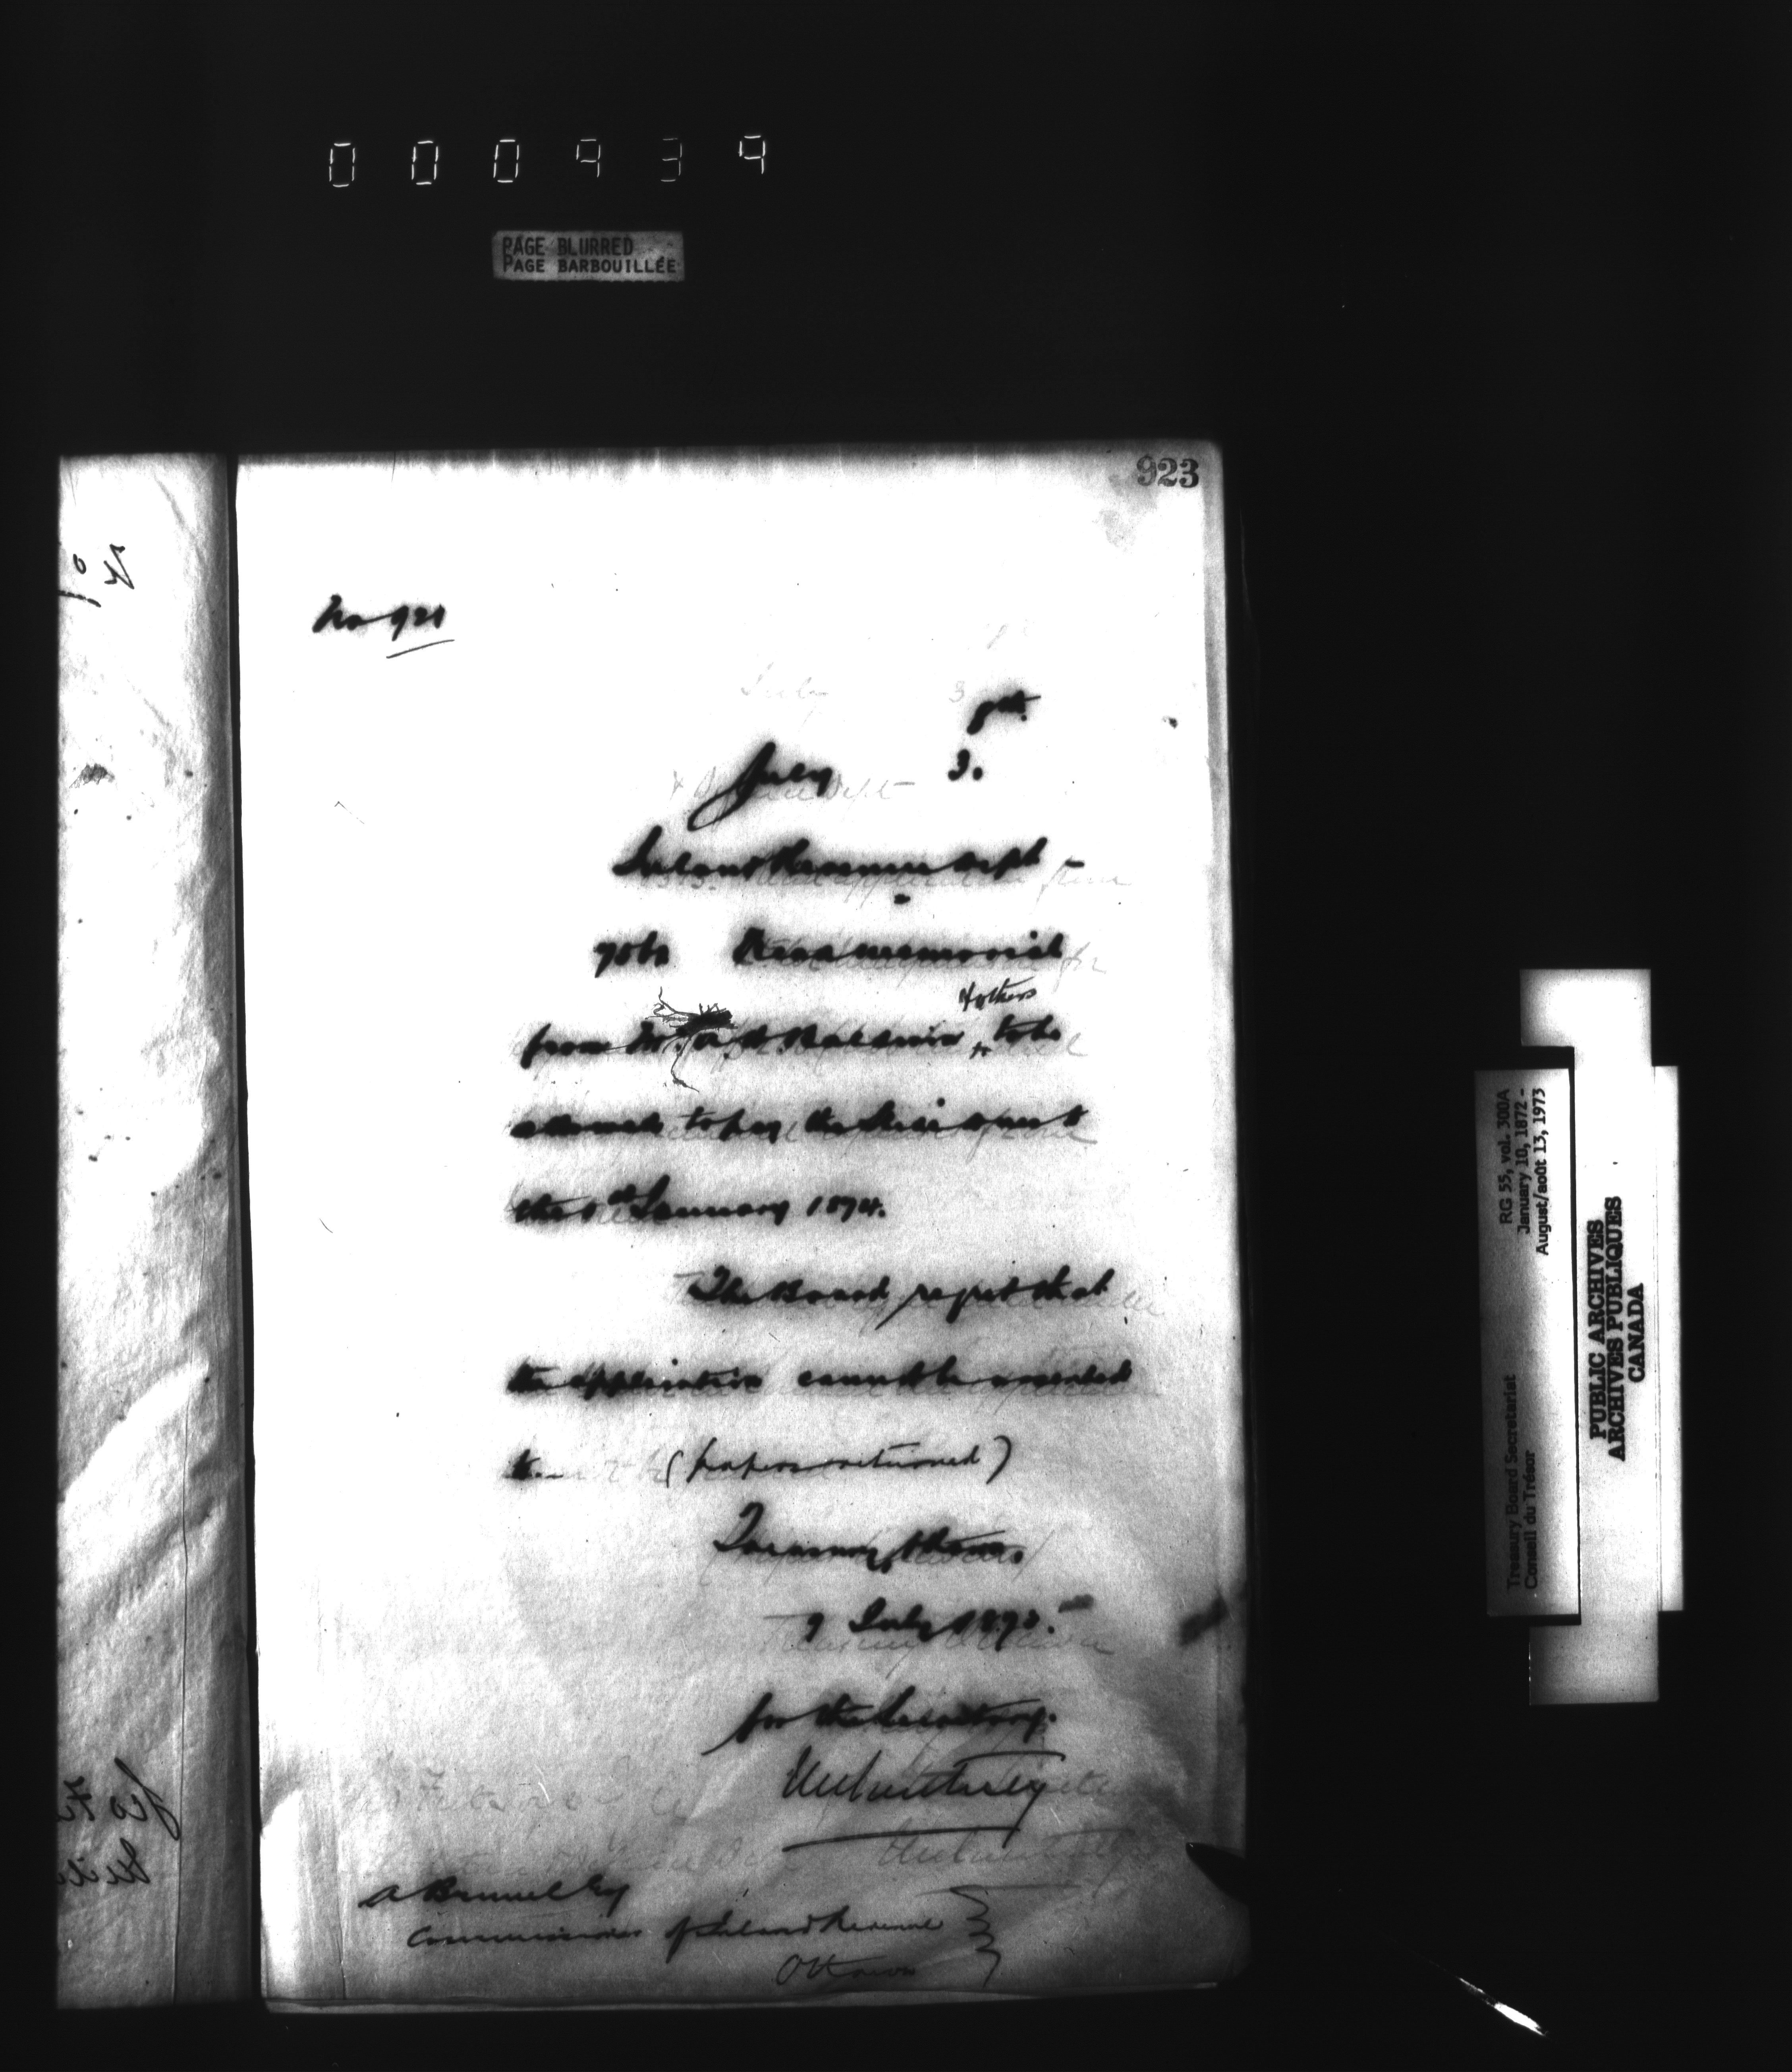 000939
PAGE BLURRED
PAGE BARBOUILLÉE
923
No 921
9th
July 3.
Inland Revenue Dept -
Read memorial
& others
from Mr. A. H. Baldwin, to be
allowed to pay the
the 1st January 1874.
The Board regret that
the application cannot be assented
to (papers returned)
Treasury
9 July 1873.
for the Secretary.
A Brunel Esq
Commissioner of Inland Revenue
Ottawa
RG 55, vol. 300A
January 10, 1872 -
August/août 13, 1973
Treasury Board Secretariat
Conseil du Trésor
PUBLIC ARCHIVES
ARCHIVES PUBLIQUES
CANADA